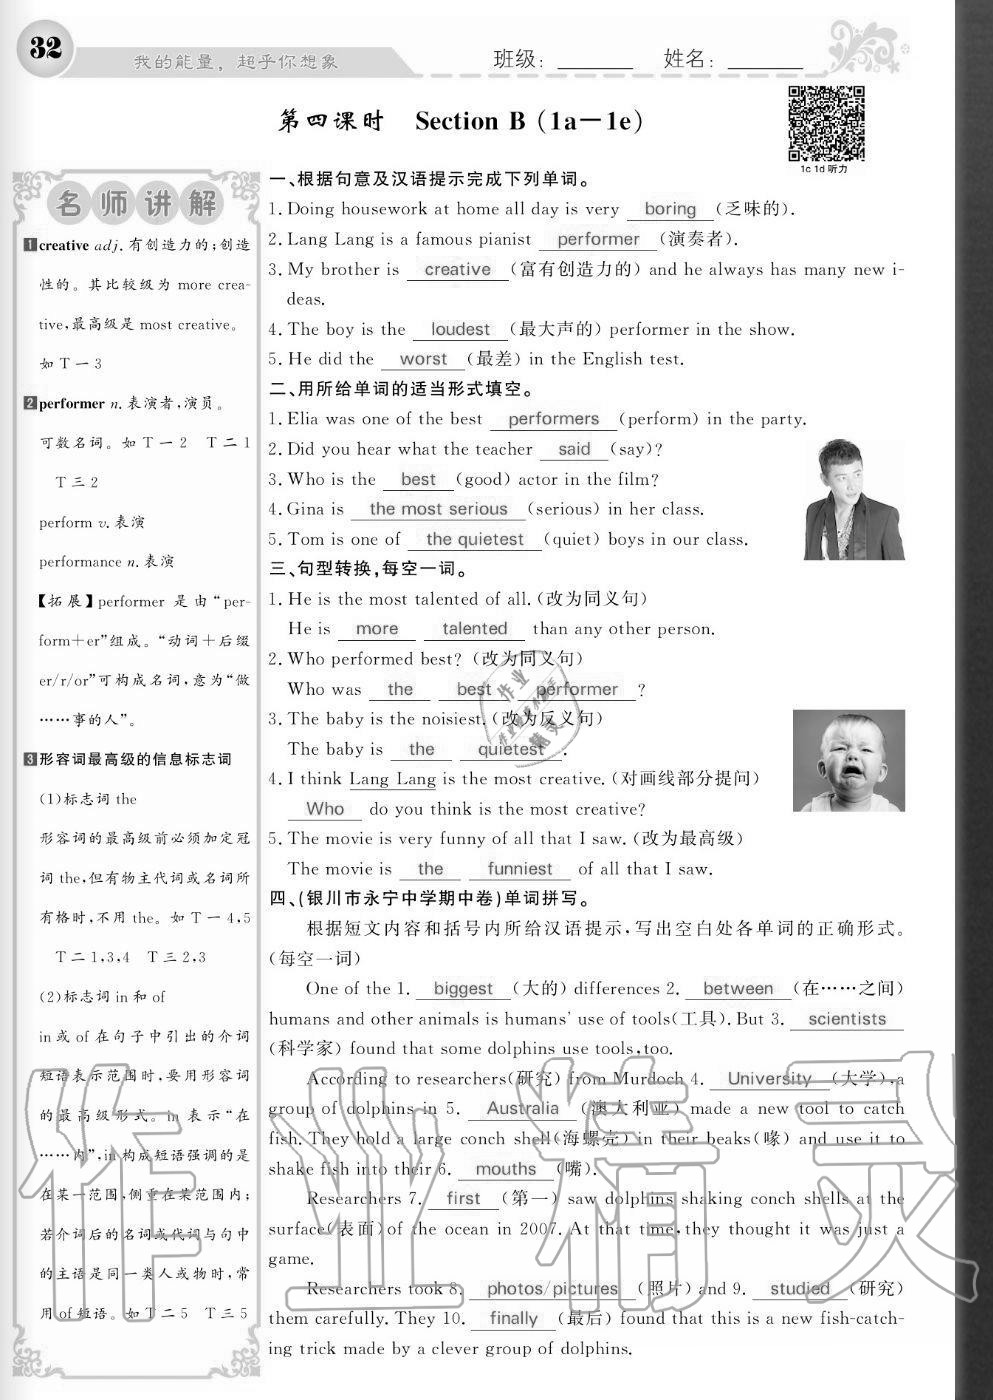 32
我的能量，超乎你想象
班级：
姓名：
第四课时 Section B (1a—1e)
1c 1d 听力
名师讲解
1 creative adj. 有创造力的;创造
性的。其比较级为 more crea-
tive,最高级是 most creative。
如 T 一 3
2 performer n. 表演者,演员。
可数名词。如 T 一 2 T 二 1
T 三 2
perform v. 表演
performance n. 表演
【拓展】performer 是由“per-
form＋er”组成。“动词＋后缀
er/r/or”可构成名词,意为“做
……事的人”。
3 形容词最高级的信息标志词
(1)标志词 the
形容词的最高级前必须加定冠
词 the,但有物主代词或名词所
有格时,不用 the。如 T 一 4,5
T 二 1,3,4 T 三 2,3
(2)标志词 in 和 of
in 或 of 在句子中引出的介词
短语表示范围时,要用形容词
的最高级形式。in 表示“在
……内”,in 构成短语强调的是
在某一范围,侧重在某范围内;
若介词后的名词或代词与句中
的主语是同一类人或物时,常
用 of 短语。如 T 二 5 T 三 5
一、根据句意及汉语提示完成下列单词。
1. Doing housework at home all day is very boring (乏味的).
2. Lang Lang is a famous pianist performer (演奏者).
3. My brother is creative (富有创造力的) and he always has many new i-
deas.
4. The boy is the loudest (最大声的) performer in the show.
5. He did the worst (最差) in the English test.
二、用所给单词的适当形式填空。
1. Elia was one of the best performers (perform) in the party.
2. Did you hear what the teacher said (say)?
3. Who is the best (good) actor in the film?
4. Gina is the most serious (serious) in her class.
5. Tom is one of the quietest (quiet) boys in our class.
三、句型转换,每空一词。
1. He is the most talented of all. (改为同义句)
He is more talented than any other person.
2. Who performed best? (改为同义句)
Who was the best performer ?
3. The baby is the noisiest. (改为反义句)
The baby is the quietest .
4. I think Lang Lang is the most creative. (对画线部分提问)
Who do you think is the most creative?
5. The movie is very funny of all that I saw. (改为最高级)
The movie is the funniest of all that I saw.
四、(银川市永宁中学期中卷)单词拼写。
根据短文内容和括号内所给汉语提示,写出空白处各单词的正确形式。
(每空一词)
One of the 1. biggest (大的) differences 2. between (在……之间)
humans and other animals is humans' use of tools(工具). But 3. scientists
(科学家) found that some dolphins use tools, too.
According to researchers(研究) from Murdoch 4. University (大学), a
group of dolphins in 5. Australia (澳大利亚) made a new tool to catch
fish. They hold a large conch shell(海螺壳) in their beaks(喙) and use it to
shake fish into their 6. mouths (嘴).
Researchers 7. first (第一) saw dolphins shaking conch shells at the
surface(表面) of the ocean in 2007. At that time, they thought it was just a
game.
Researchers took 8. photos/pictures (照片) and 9. studied (研究)
them carefully. They 10. finally (最后) found that this is a new fish-catch-
ing trick made by a clever group of dolphins.
作业精灵